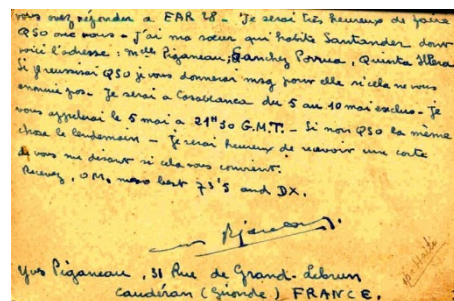 vous avez répondre a EAR 28 - Je serai très heureux de faire
QSO avec vous - J'ai ma sœur qui habite Santander dont
voici l'adresse : Melle Piganeau, Sanchez Porrua, Quinta
Si reussirai QSO je vous donnerai msg pour elle si cela ne vous
ennuie pas - Je serai a Casablanca du 5 au 10 mai exclus - Je
vous appelerai le 5 mai a 21H30 G.M.T. - Si non QSO la même
chose le lendemain - Je serai heureux de recevoir une carte
de vous me disant si cela vous convient.
Recevez, O.M. mes best 73's and DX.
Yves Piganeau, 31 Rue de Grand-Lebrun
Caudéran (Gironde) FRANCE.